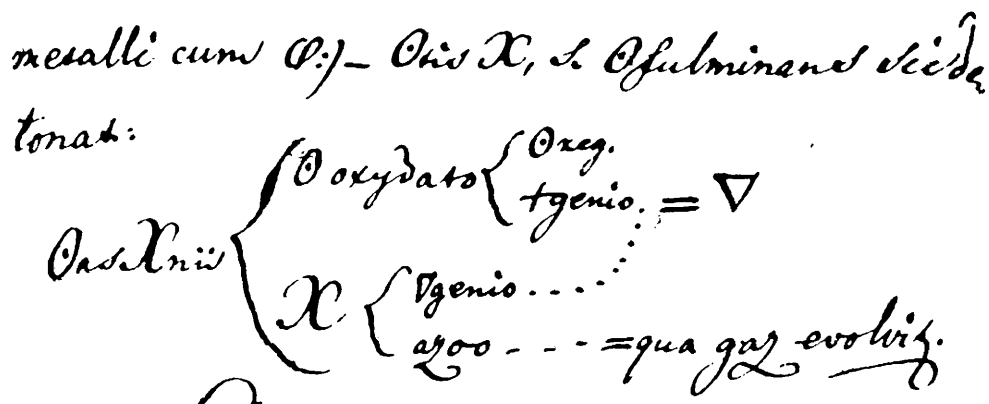 metalli cum ☉:)– ☉tis X, s. ☉fulminans sic de
tonat:
☉as Xnii
☉ oxydato
☉ reg.
+genio. = ▽
X
▽genio . . . .
azoo - - - = qua gaz evolvit.